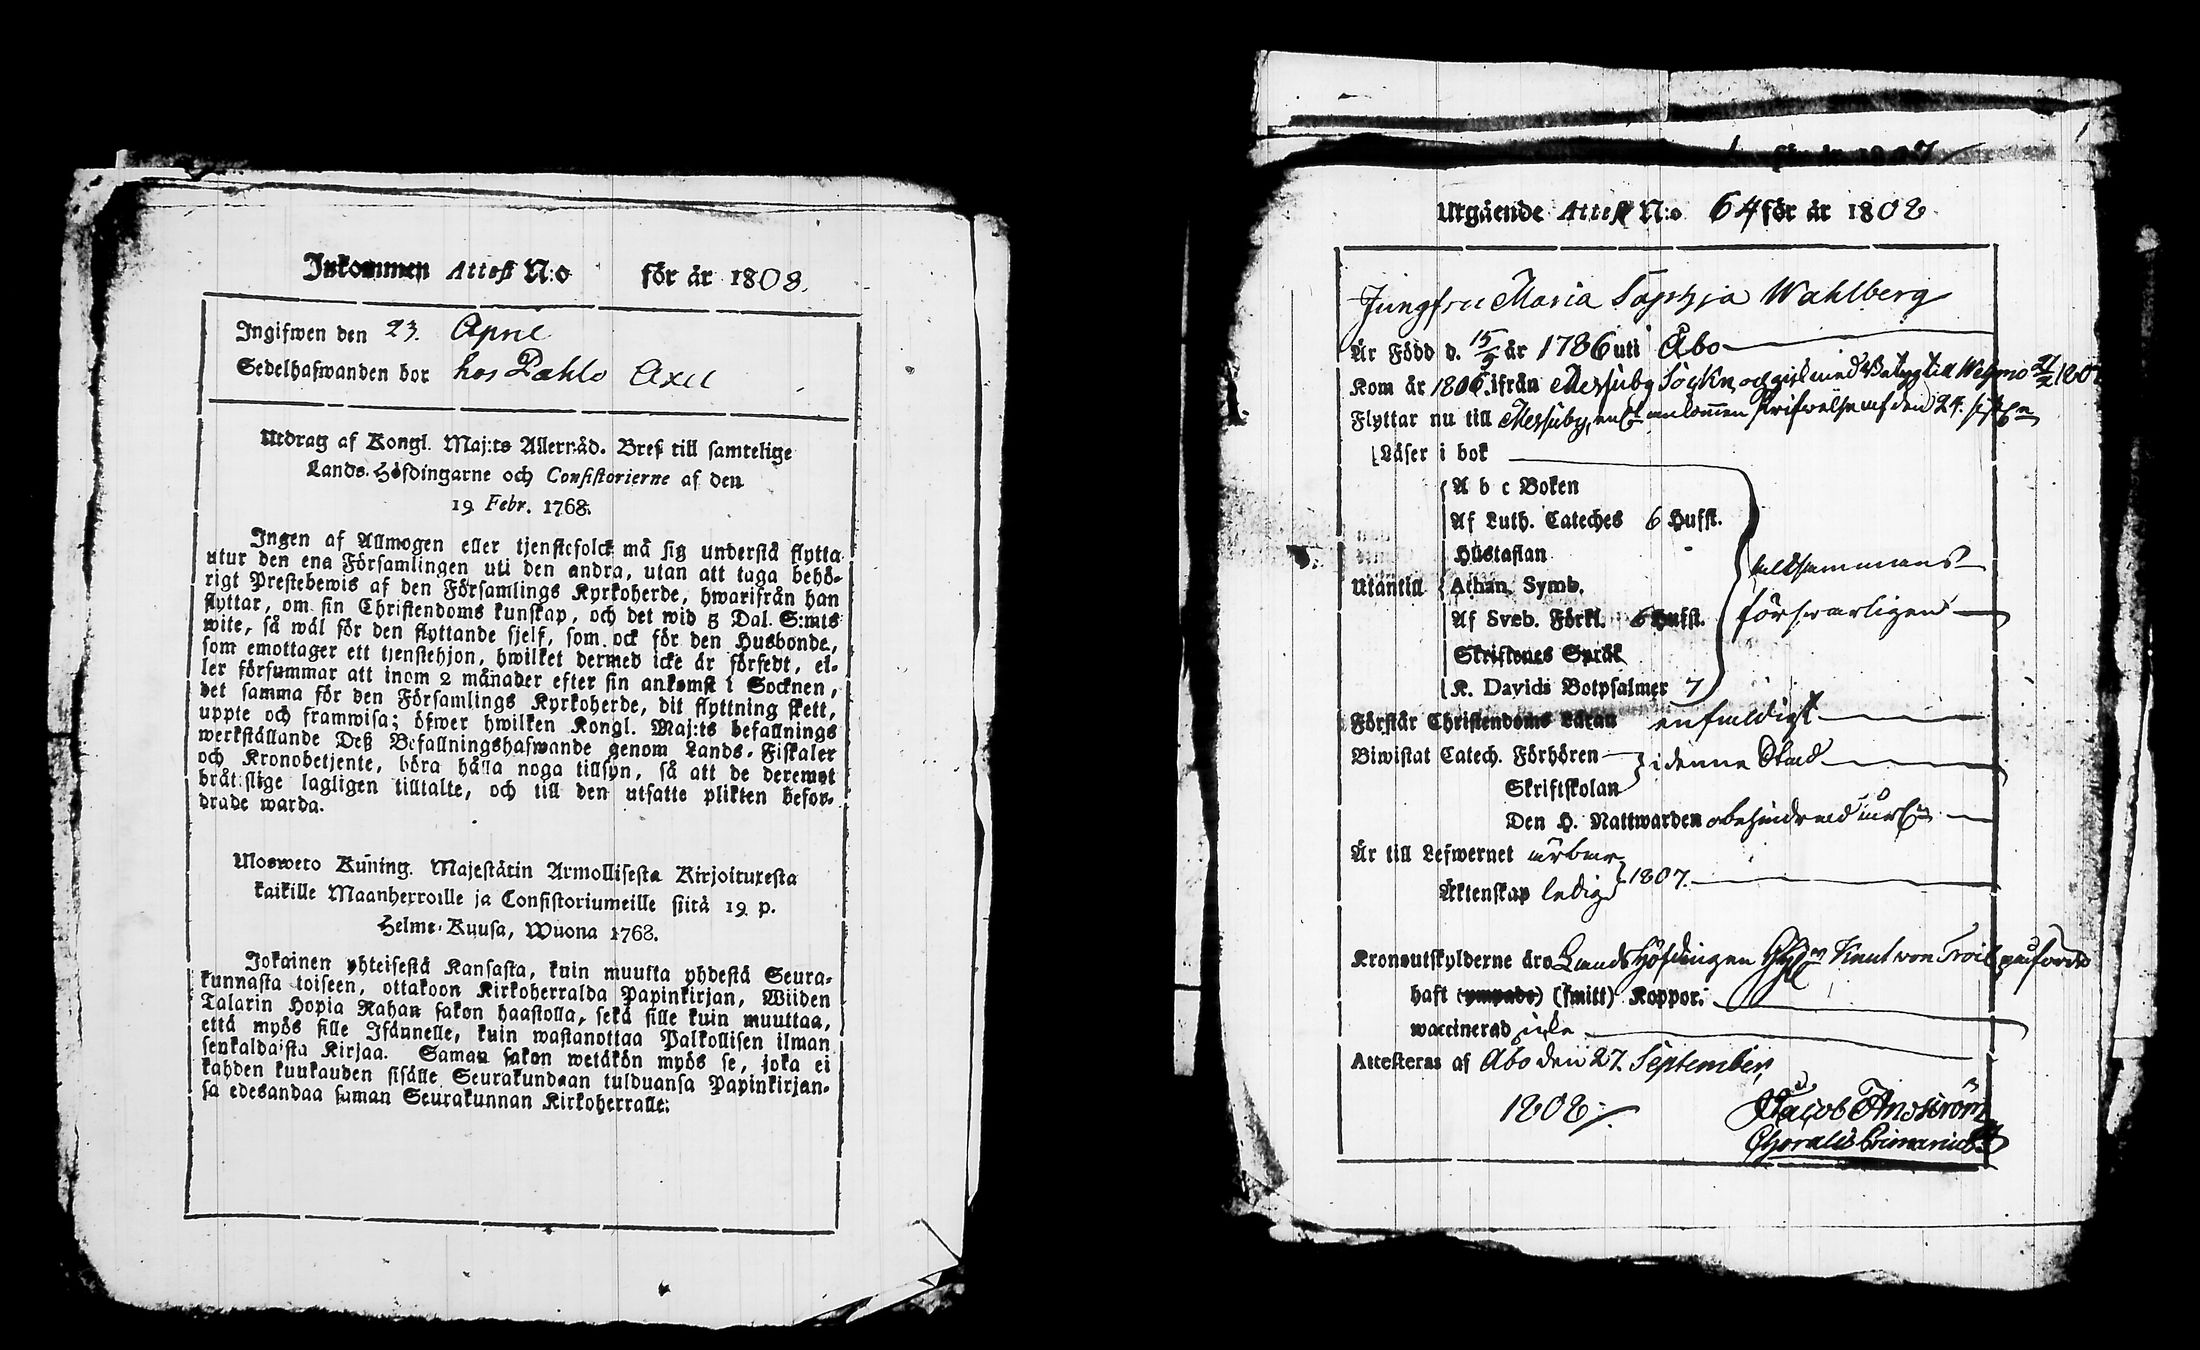 Inkommen Attest N:o för år 1808.
Ingifwen den 23. April
Sedelhafwanden bor hos Pahlo Axel
Utdrag af Kongl. Maj:ts Allernåd. Bref till samtelige
Lands-Höfdingarne och Consistorierne af den
19 Febr. 1768.
Ingen af Allmogen eller tjenstefolck må sig understå flytta
utur den ena Församlingen uti den andra, utan att taga behö-
rigt Prestebewis af den Församlings Kyrkoherde, hwarifrån han
flyttar, om sin Christendoms kunskap, och det wid 5 Dal. S:mts
wite, så wäl för den flyttande sjelf, som ock för den Husbonde,
som emottager ett tjenstehjon, hwilket dermed icke är försedt, el-
ler försummar att inom 2 månader efter sin ankomst i Socknen,
det samma för den Församlings Kyrkoherde, dit flyttning skett,
uppte och framwisa; öfwer hwilken Kongl. Maj:ts befallnings
werkställande Deß Befallningshafwande genom Lands-Fiskaler
och Kronobetjente, böra hålla noga tillsyn, så att de deremot
bråtslige lagligen tilltalte, och till den utsatte plikten befor-
drade warda.
Ulosweto Kuning. Majestätin Armollisesta Kirjoituxesta
kaikille Maanherroille ja Consistoriumeille siitä 19 p.
Helme-Kuusa, Wuona 1768.
Jokainen yhteisestä Kansasta, kuin muutta yhdestä Seura-
kunnasta toiseen, ottakoon Kirkoherralda Papinkirjan, Wiiden
Talarin Hopia Rahan sakon haastolla, sekä sille kuin muuttaa,
että myös sille Isännelle, kuin wastanottaa Palkollisen ilman
senkaldaista Kirjaa. Saman sakon wetäkön myös se, joka ei
kahden kuukauden sisälle Seurakundaan tulduansa Papinkirjan-
sa edesandaa saman Seurakunnan Kirkoherralle.
för år 1807
Utgående Attest N:o 64 för år 1808
Jungfru Maria Sophja Wahlberg
Är Född d. 15/9 år 1786 uti Åbo
Kom år 1806. ifrån Messuby Sockn, och gick med Betyg till 21/2 1807
Flyttar nu till Messuby, enl. ankommen skrifwelse af den 24.
Läser i bok
A b c Boken
Af Luth. Cateches 6 Hufst.
Hustaflan
Utantill Athan. Symb.
Af Sveb. Förkl. 6 Hufst.
Skriftenes Språk
K. Davids Botpsalmer 7
altsammans
förswarligen
Förstår Christendoms Läran enfaldigt
Biwistat Catech. Förhören
Skriftskolan
i denne Stad
Den H. Nattwarden obehindrad
Är till Lefwernet ärbar
Äktenskap ledig
1807.
Kronoutskylderne äro LandsHöfdingen Knut von Troil
haft (ympade) (smitt) Koppor.
waccinerad icke
Attesteras af Åbo den 27. September,
1808
Jacob